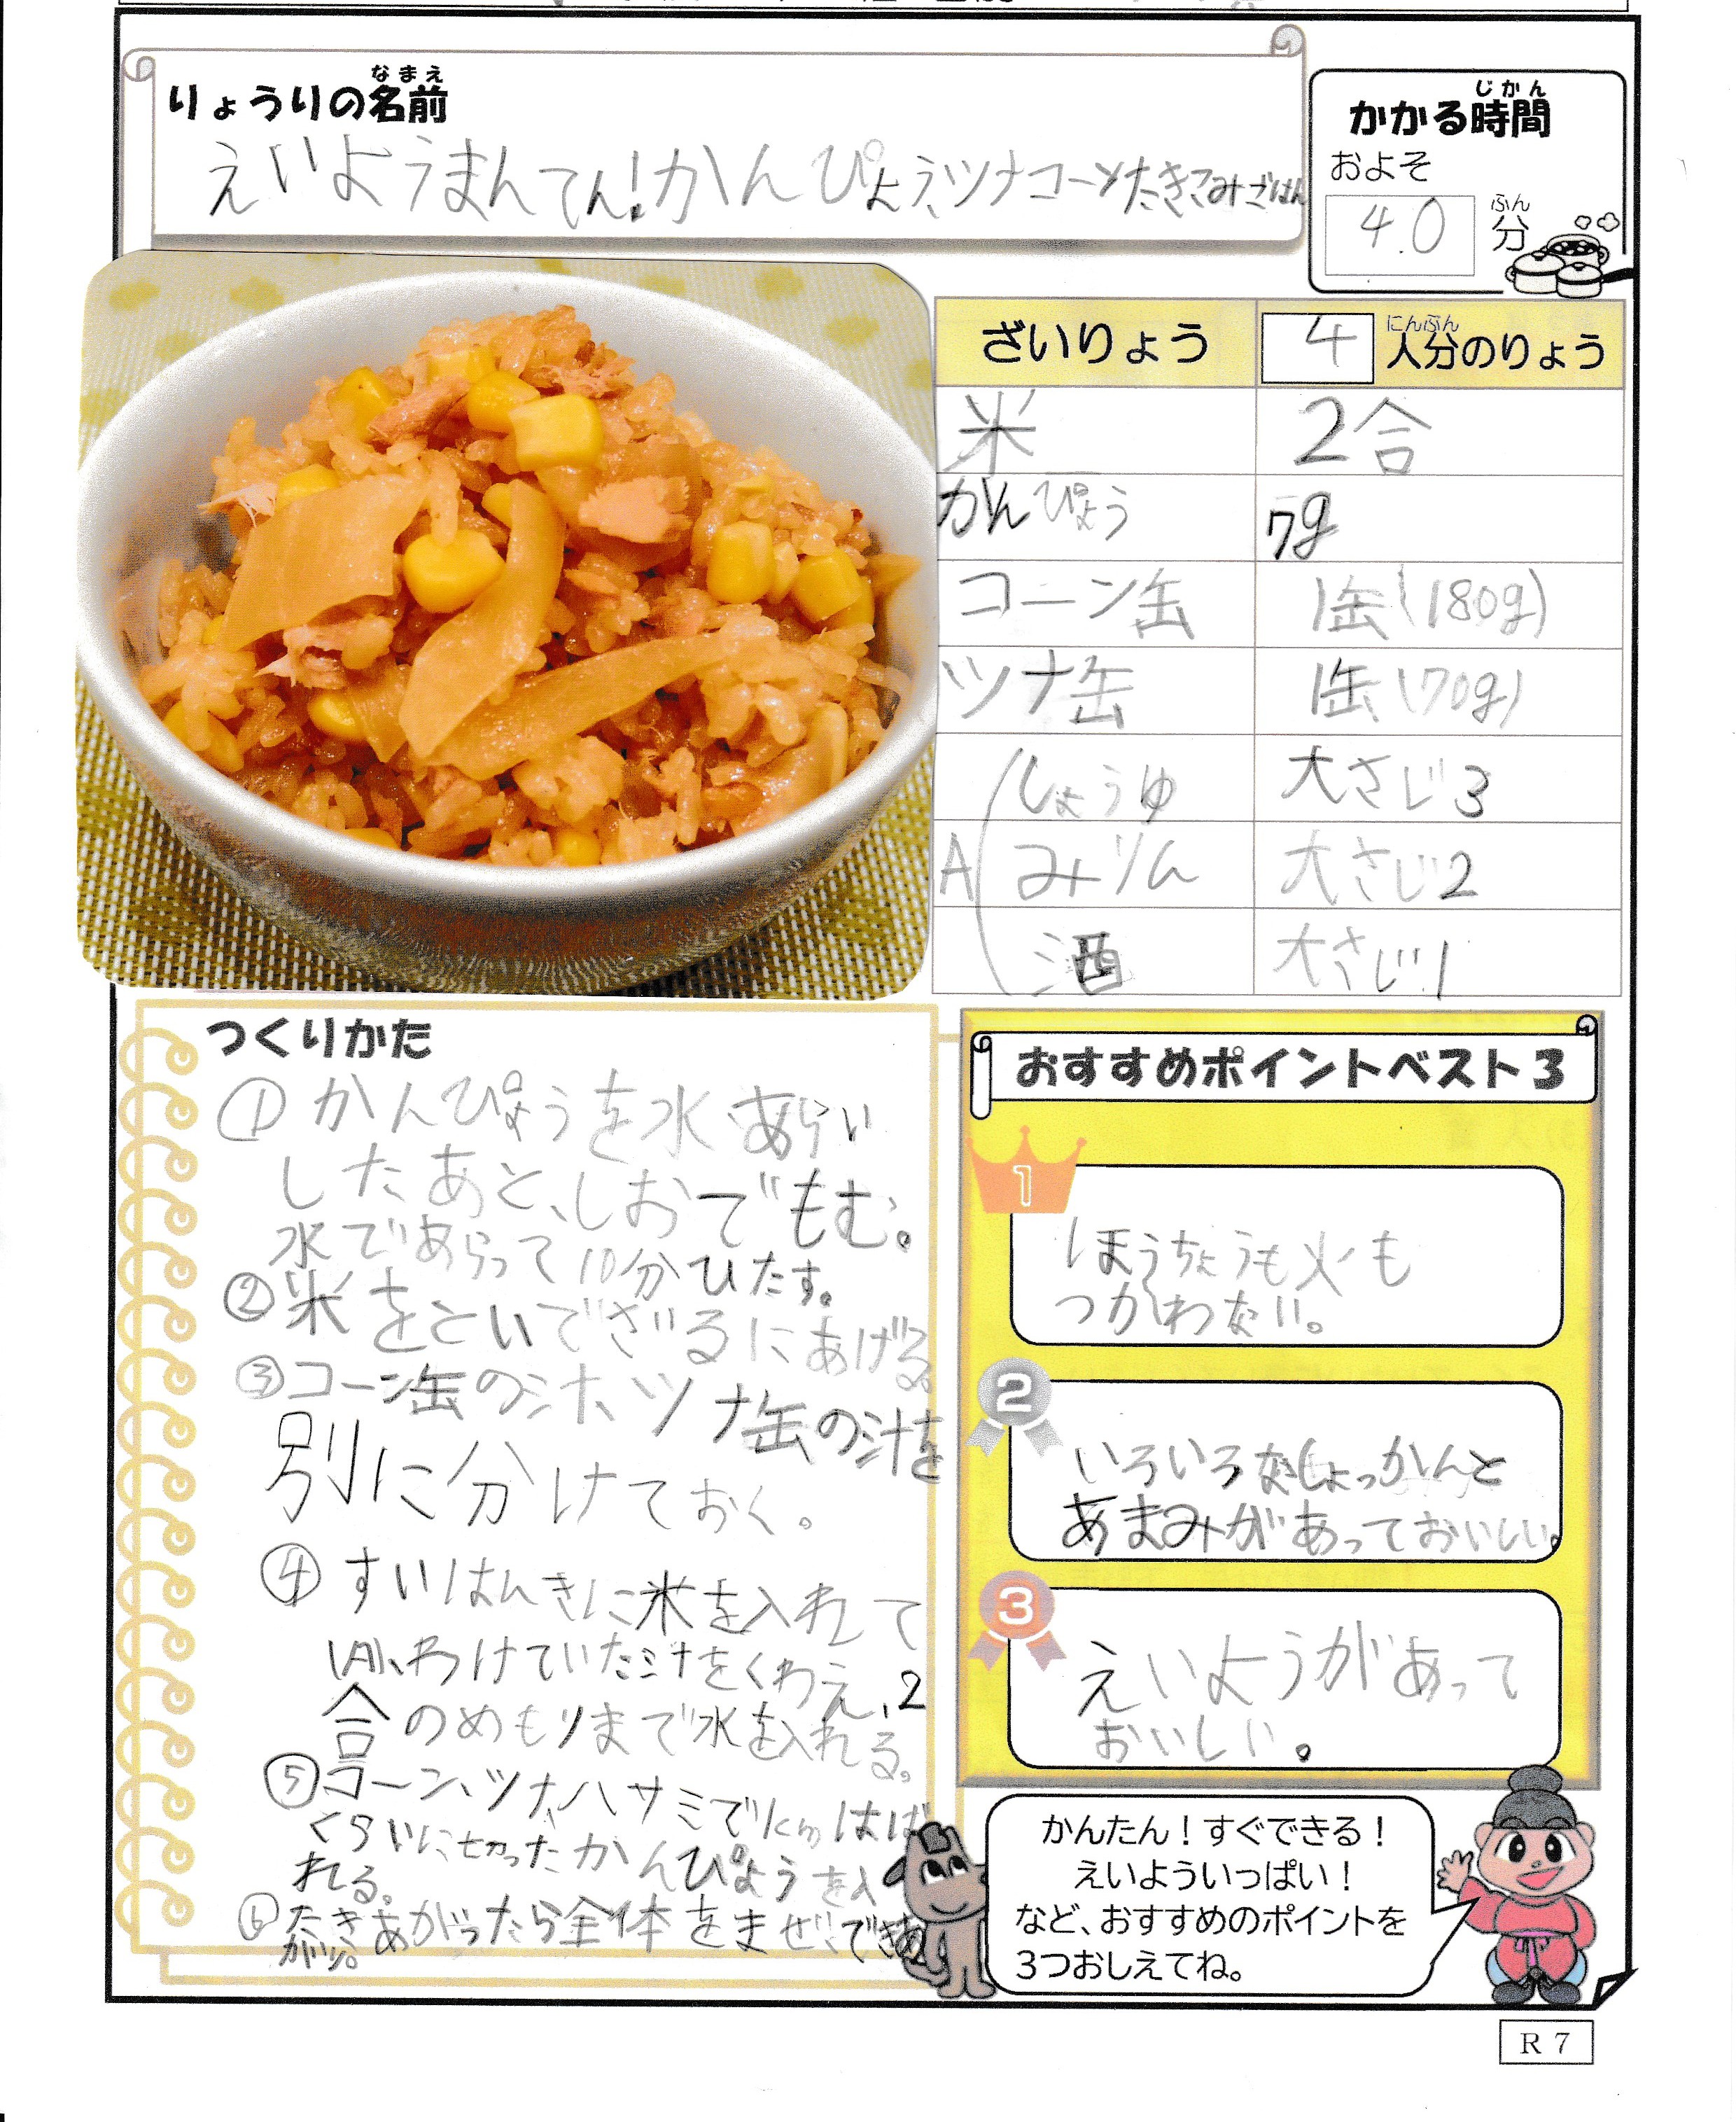 りょうりの名前
なまえ
えいようまんてん!かんぴょう、ツナコーンたきこみごはん
かかる時間
じかん
およそ
40
分
ふん
ざいりょう
4
人分のりょう
にんぶん
米
2合
かんぴょう
7g
コーン缶
1缶(180g)
ツナ缶
1缶(70g)
A
しょうゆ
大さじ3
みりん
大さじ2
酒
大さじ1
つくりかた
①かんぴょうを水あらい
したあと、しおでもむ。
水であらって10分ひたす。
②米をといでざるにあげる。
③コーン缶の汁、ツナ缶の汁を
別に分けておく。
④すいはんきに米を入れて
A、わけていた汁をくわえ、2
合のめもりまで水を入れる。
⑤コーン、ツナ、ハサミで1cmはば
くらいに切ったかんぴょうを入
れる。
⑥たきあがったら全体をまぜ、できあ
がり。
おすすめポイントベスト3
1
ほうちょうも火も
つかわない。
2
いろいろなしょっかんと
あまみがあっておいしい。
3
えいようがあって
おいしい。
かんたん!すぐできる!
えいよういっぱい!
など、おすすめのポイントを
3つおしえてね。
R7